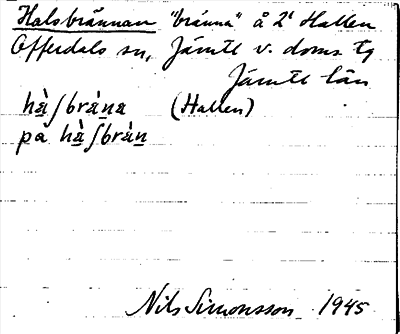 Halsbrännan "bränna" å 2¹ Hallen
Offerdals sn, Jämtl v. doms tg
Jämtl län
hàʃbrána (Hallen)
på hàʃbràn
Nils Simonsson 1945